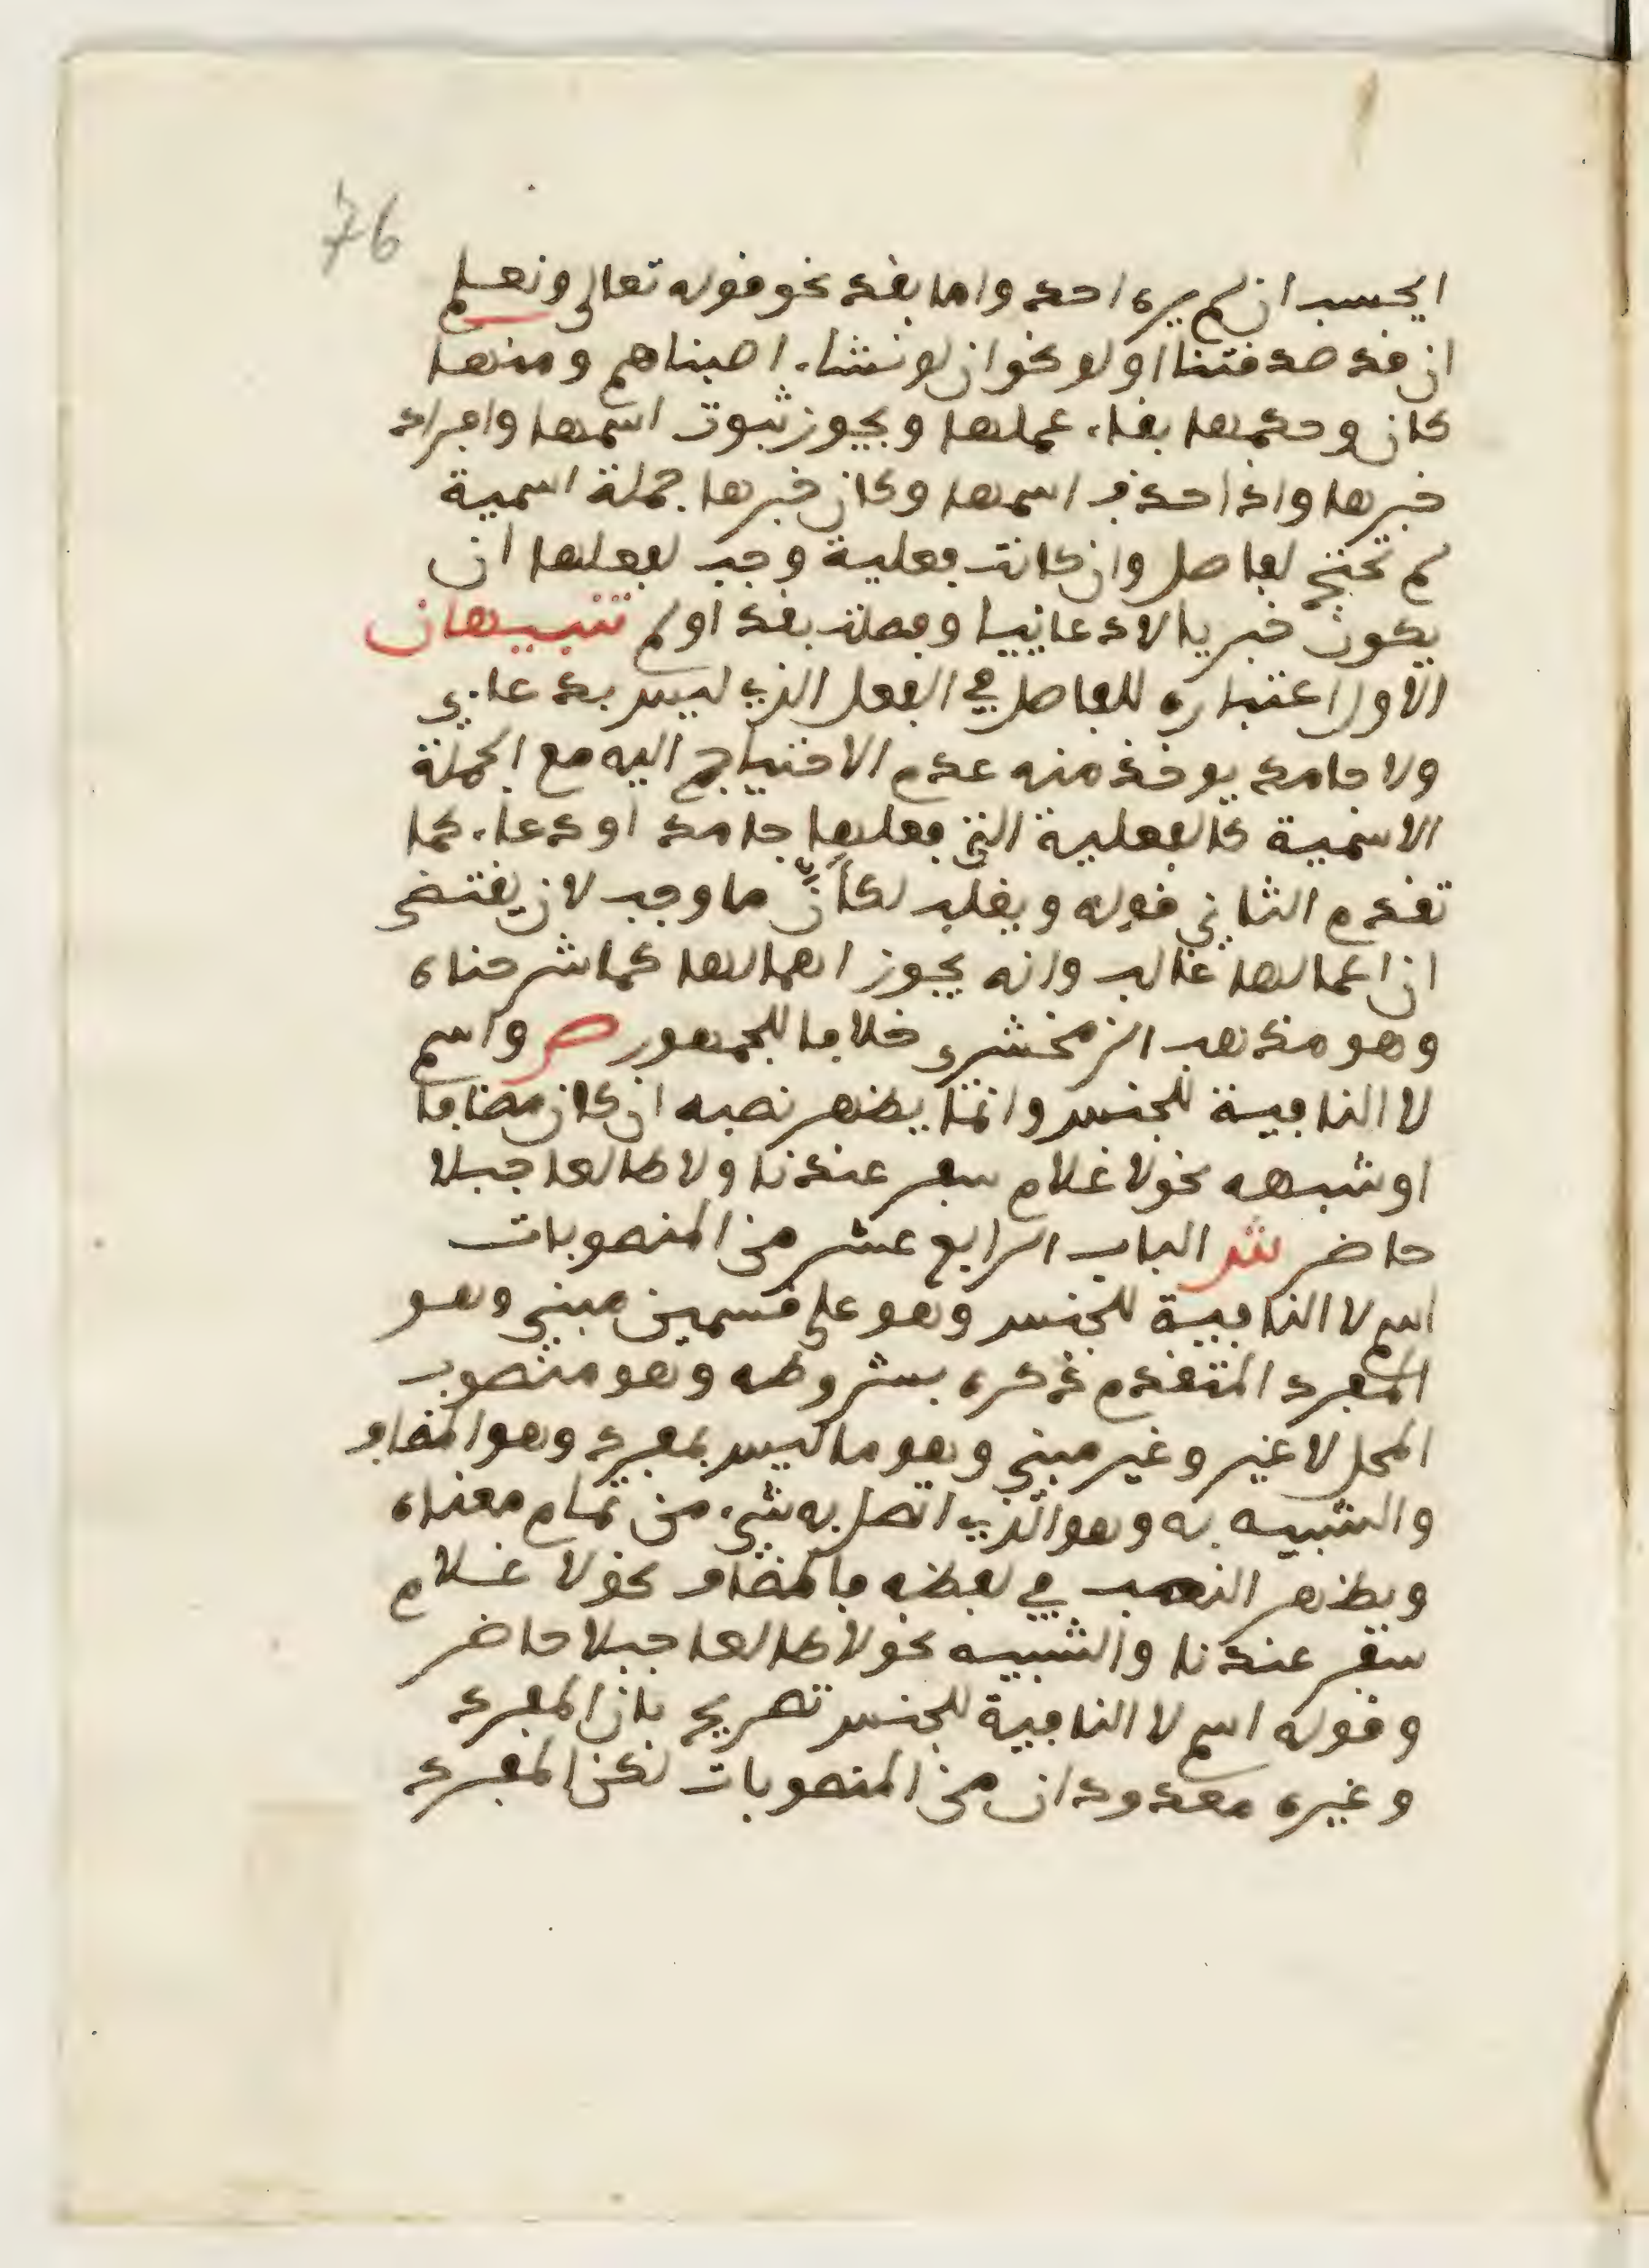 76
ايحسب ان لم يره احد واما بقد نحو قوله تعالى ونعلم
ان قد صدقتنا او لو نحو ان لو نشاء اصبناهم ومنها
كان وحكمها بقاء عملها ويجوز ثبوت اسمها وافراد
خبرها واذا حذف اسمها وكان خبرها جملة اسمية
لم تحتج لفاصل وان كانت فعلية وجب لفعلها ان
يكون خبريا لا دعائيا وفصلت بقد او لم تنبيهان
الاول اعتباره للفاصل في الفعل الذي ليس بدعاءي
ولا جامد يوخذ منه عدم الاحتياج اليه مع الجملة
الاسمية كالفعلية التي فعلها جامد او دعاء كما
تقدم الثاني قوله ويغلب لكأنّ ما وجب لان يقتضى
ان اعمالها غالب وانه يجوز اهمالها كما شرحناه
وهو مذهب الزمخشري خلافا للجمهور ص واسم
لا النافية للجنس وانما يظهر نصبه ان كان مضافا
او شبهه نحو لا غلام سفر عندنا ولا طالعا جبلا
حاضر ش الباب الرابع عشر من المنصوبات
اسم لا النافية للجنس وهو على قسمين مبني وهو
المفرد المتقدم ذكره بشروطه وهو منصوب
المحل لا غير وغير مبني وهو ما ليس بمفرد وهو المضاف
والشبيه به وهو الذي اتصل به شيء من تمام معناه
ويظهر النصب في لفظه فالمضاف نحو لا غلام
سفر عندنا والشبيه نحو لا طالعا جبلا حاضر
وقوله اسم لا النافية للجنس تصريح بان المفرد
وغيره معدودان من المنصوبات لكن المفرد